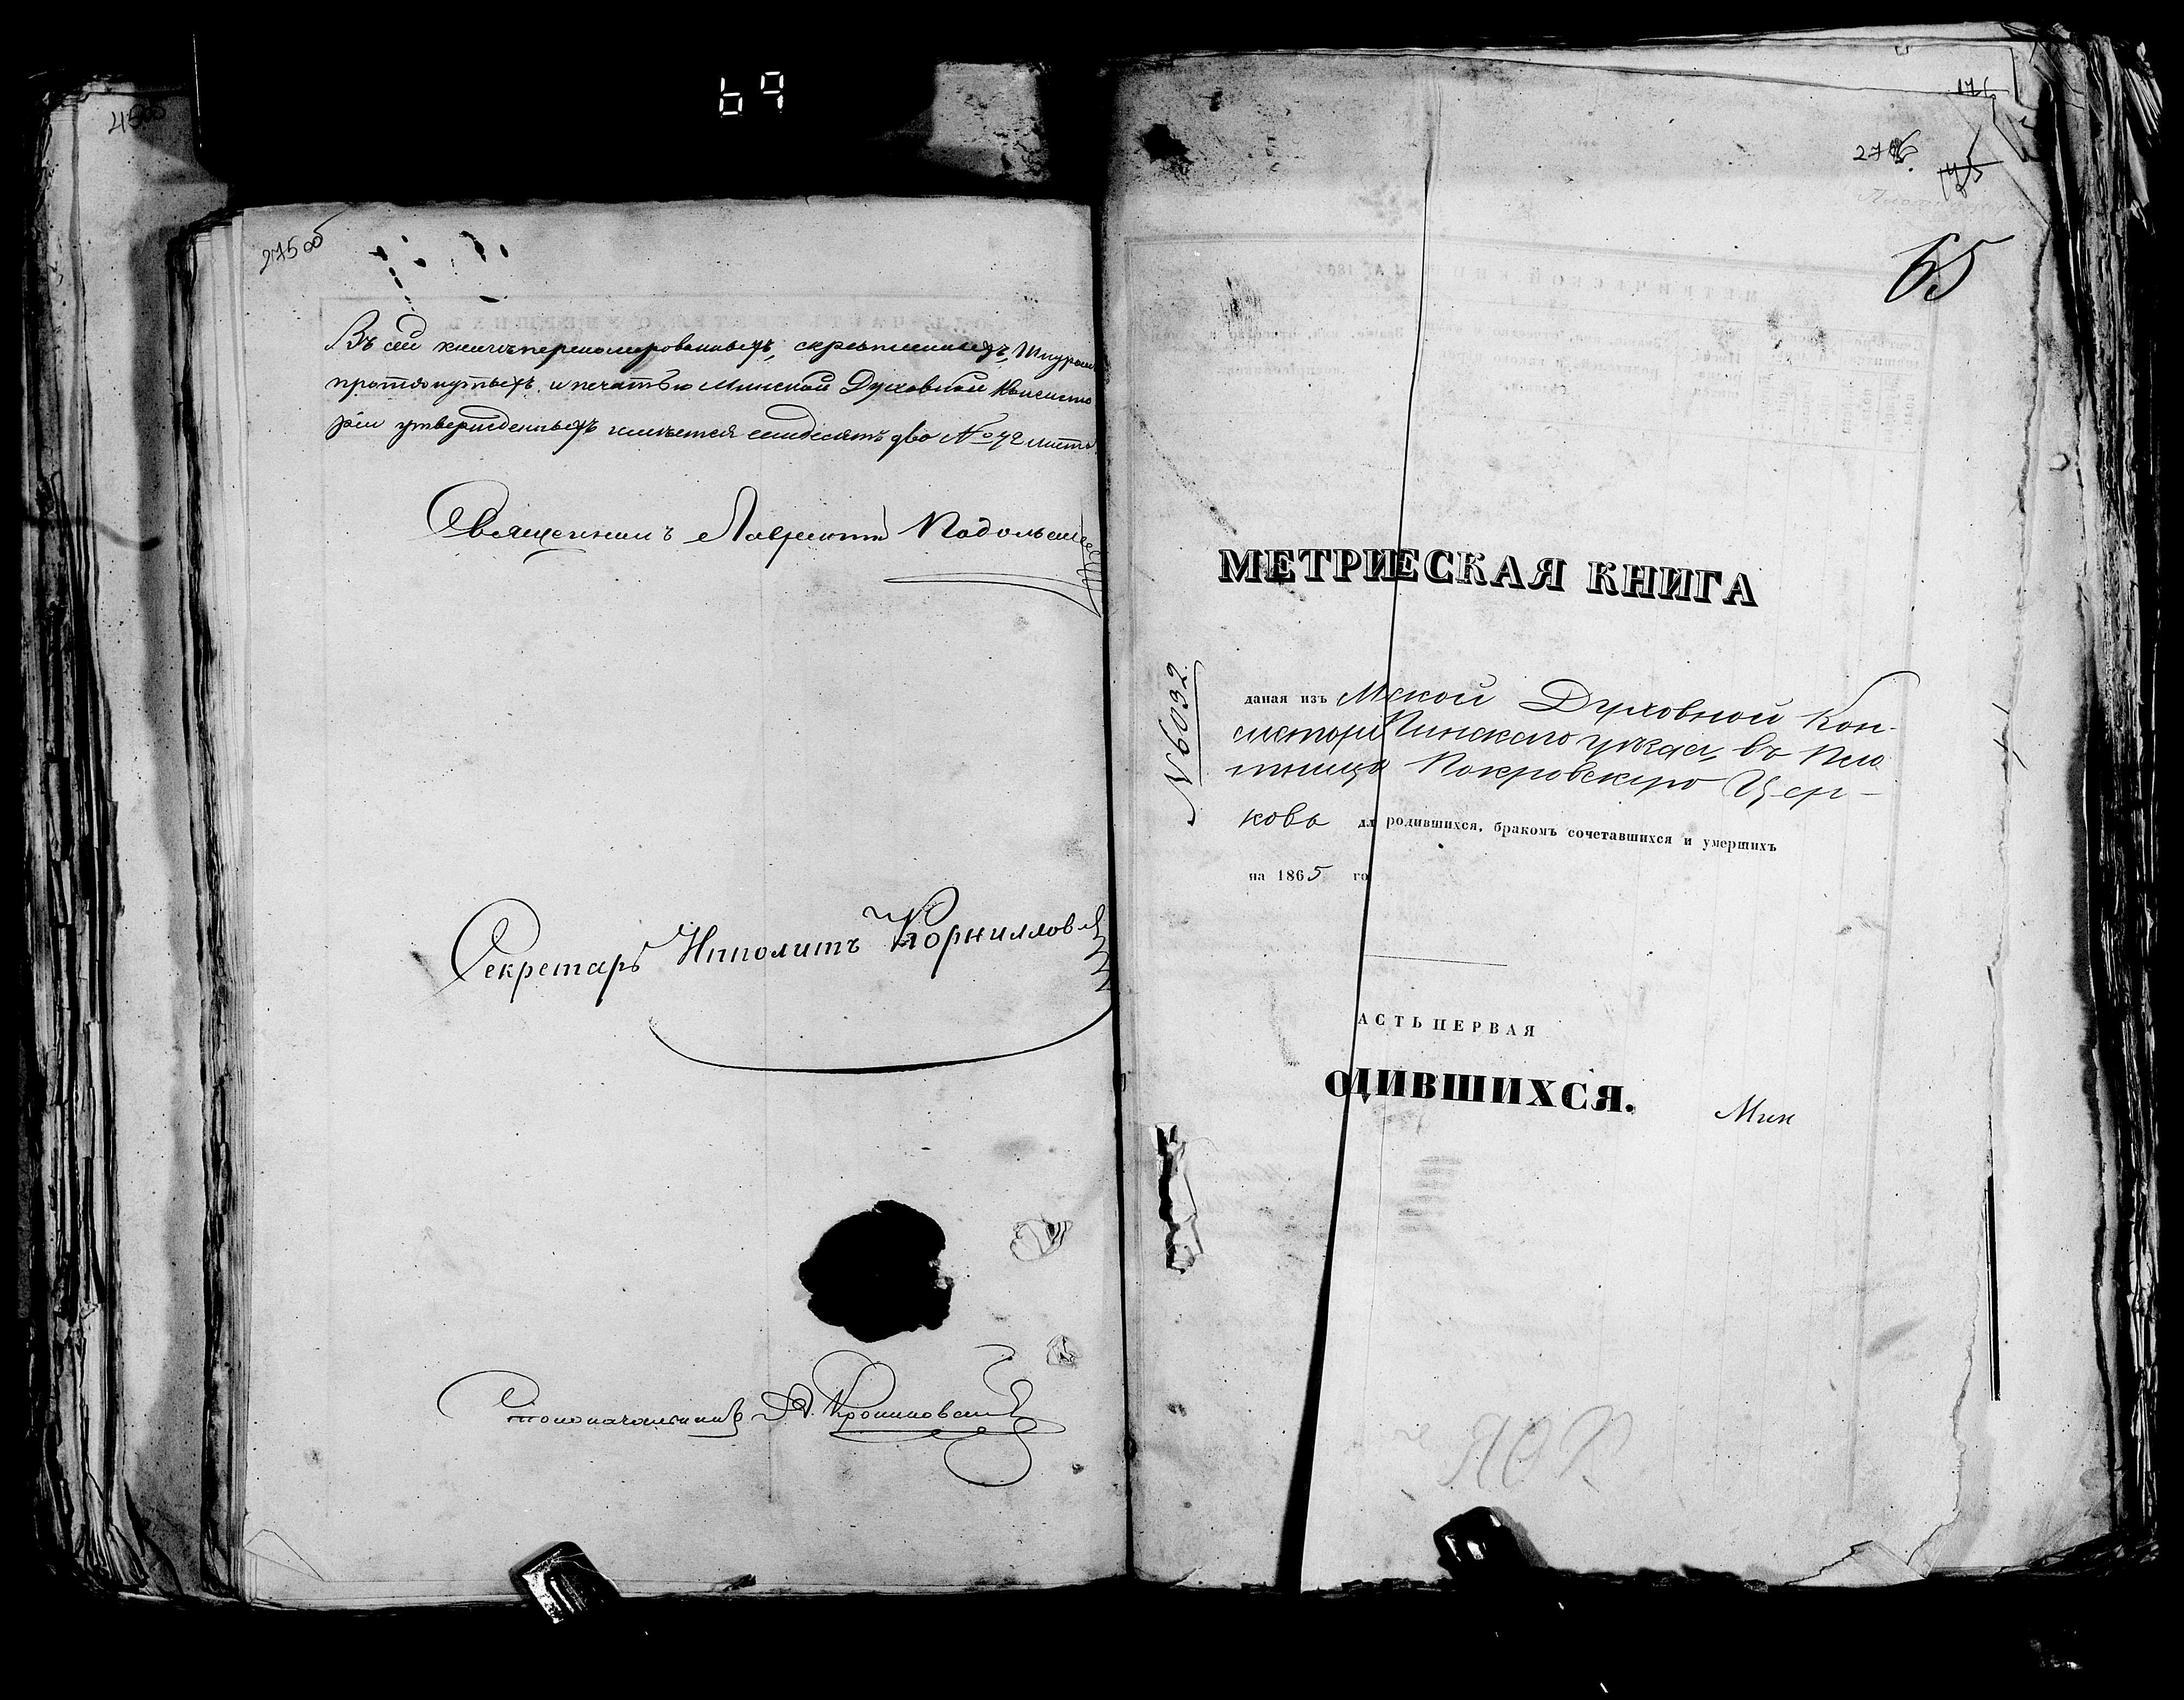 69
275 об
Въ сей книгѣ перенумерованныхъ, скрѣпленныхъ, Шнуромъ
протянутыхъ и печатью Минской Духовной Консисто
ріи утвержденныхъ имѣется семдесятъ два № 72 листа
Священникъ Лаврентій Подольскій
Секретарь Ипполитъ Корниллов
Столоначальникъ
176
276
175
65
МЕТРИЕСКАЯ КНИГА
№ 6032
даная изъ Мской Духовной Кон-
систори Пинскаго уѣзда, въ Пло
тницк Покровскую Цер-
ковь дл родившихся, бракомъ сочетавшихся и умершихъ
на 1865 го
АСТЬ ПЕРВАЯ
ОДИВШИХСЯ.
Мин